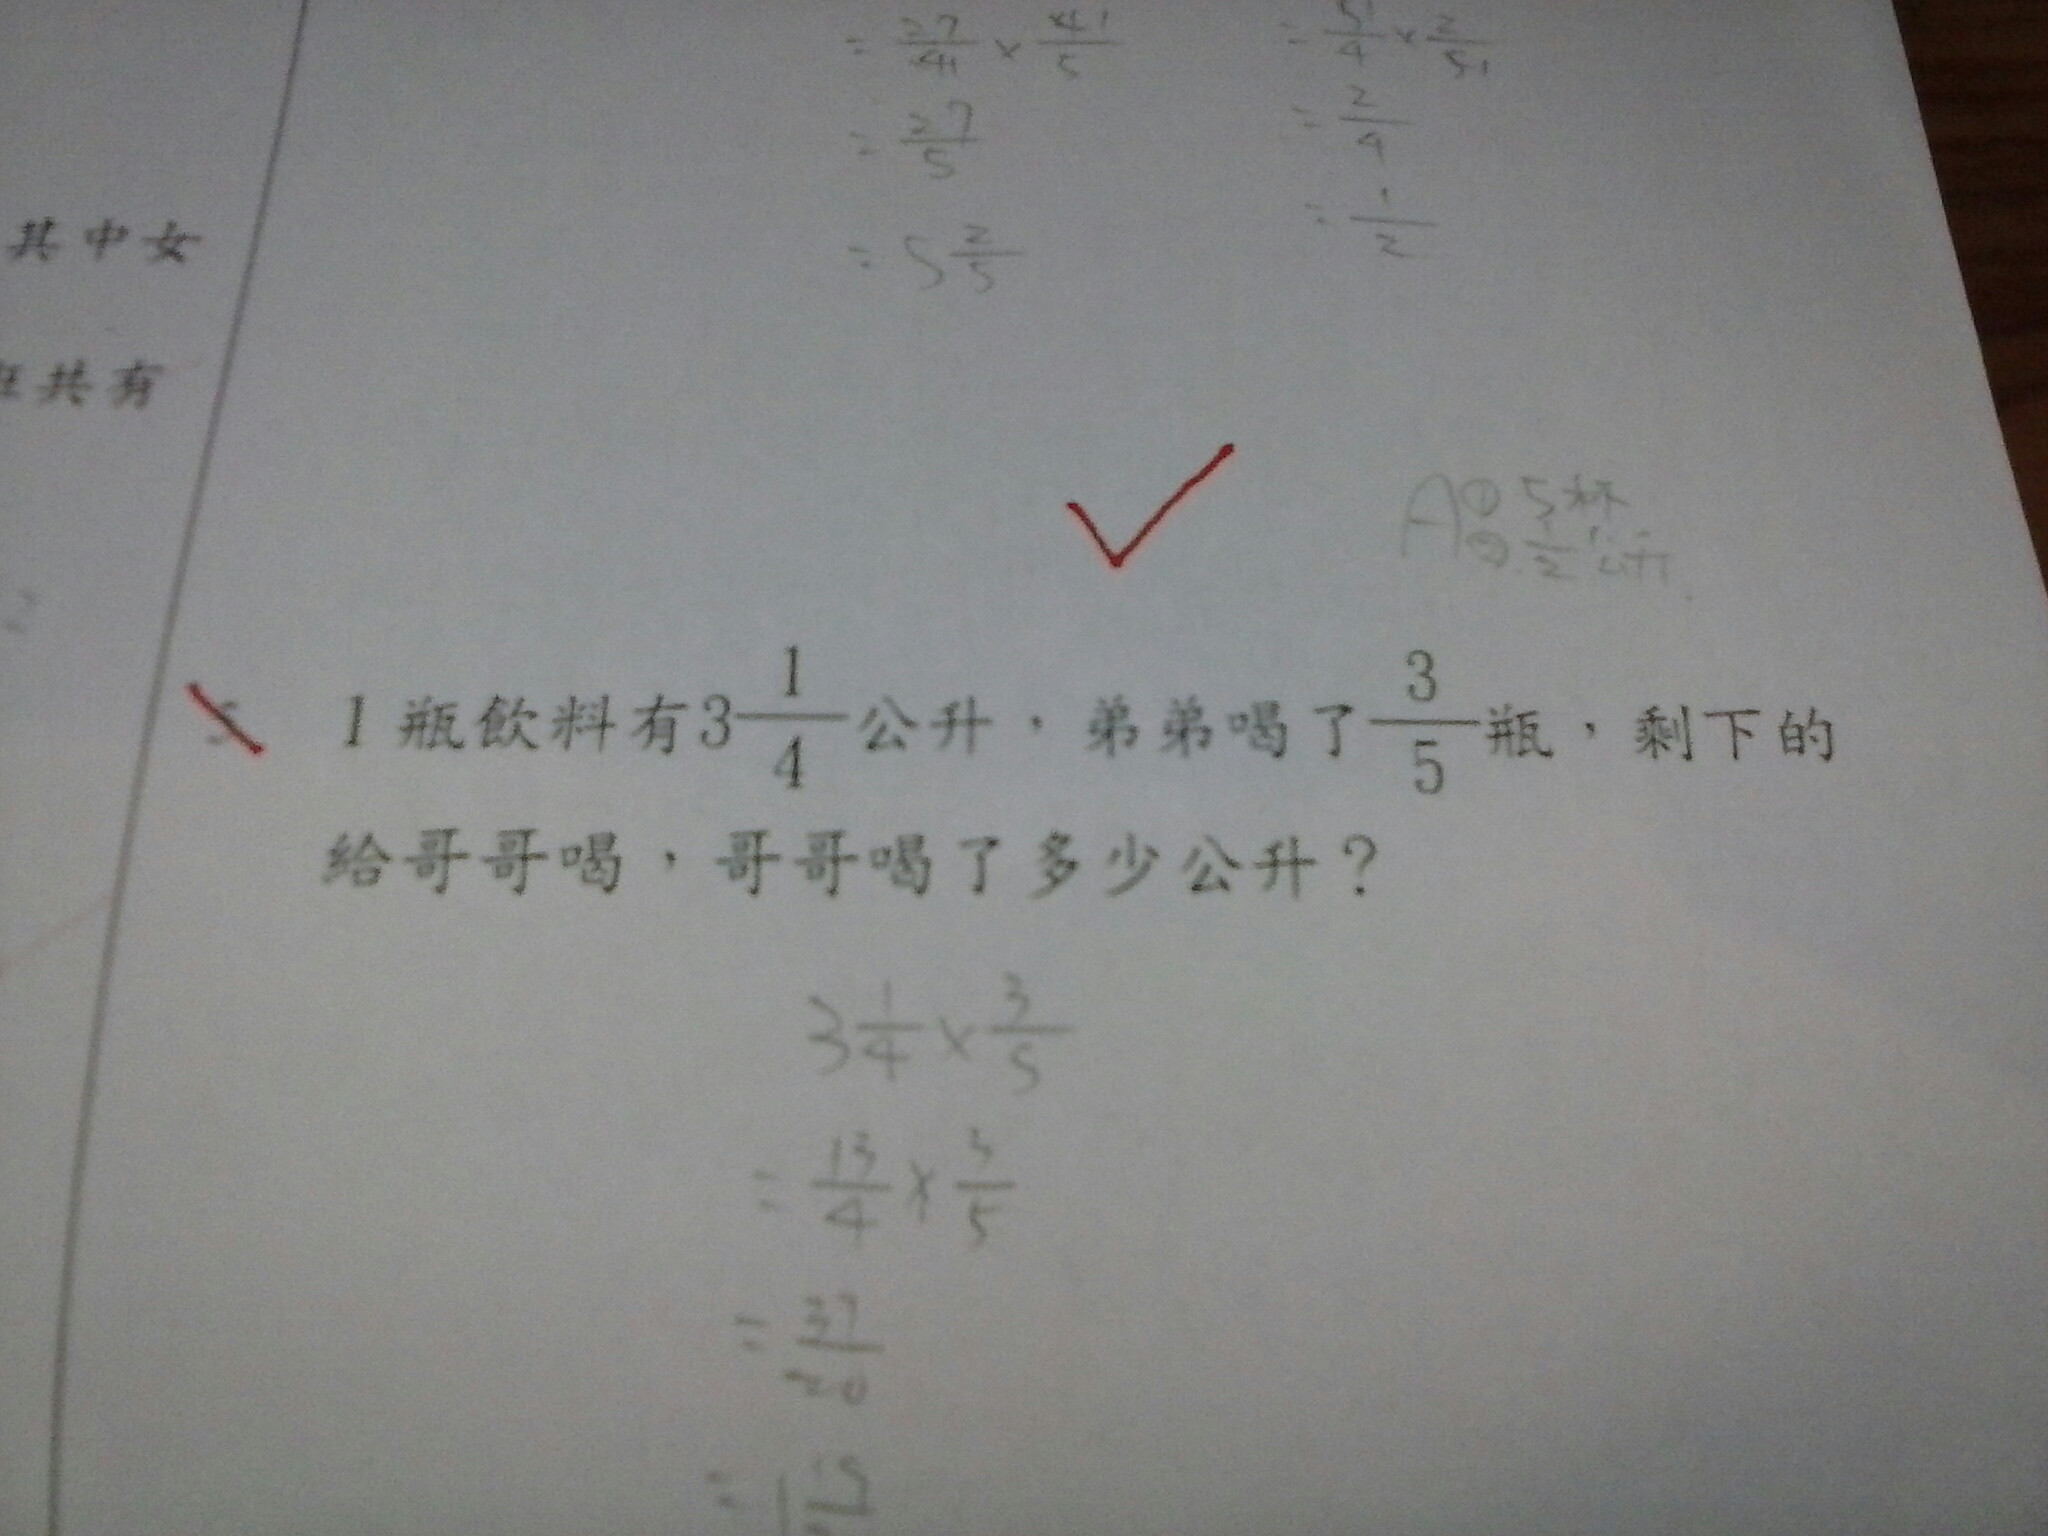 = 27/41 × 41/5
= 27/5
= 5 2/5
= 51/4 × 2/51
= 2/4
= 1/2
其中女
班共有
A ① 5杯
② 1/2 公升
5 1 瓶飲料有3 1/4 公升，弟弟喝了 3/5 瓶，剩下的
給哥哥喝，哥哥喝了多少公升？
3 1/4 × 3/5
= 13/4 × 3/5
= 37/20